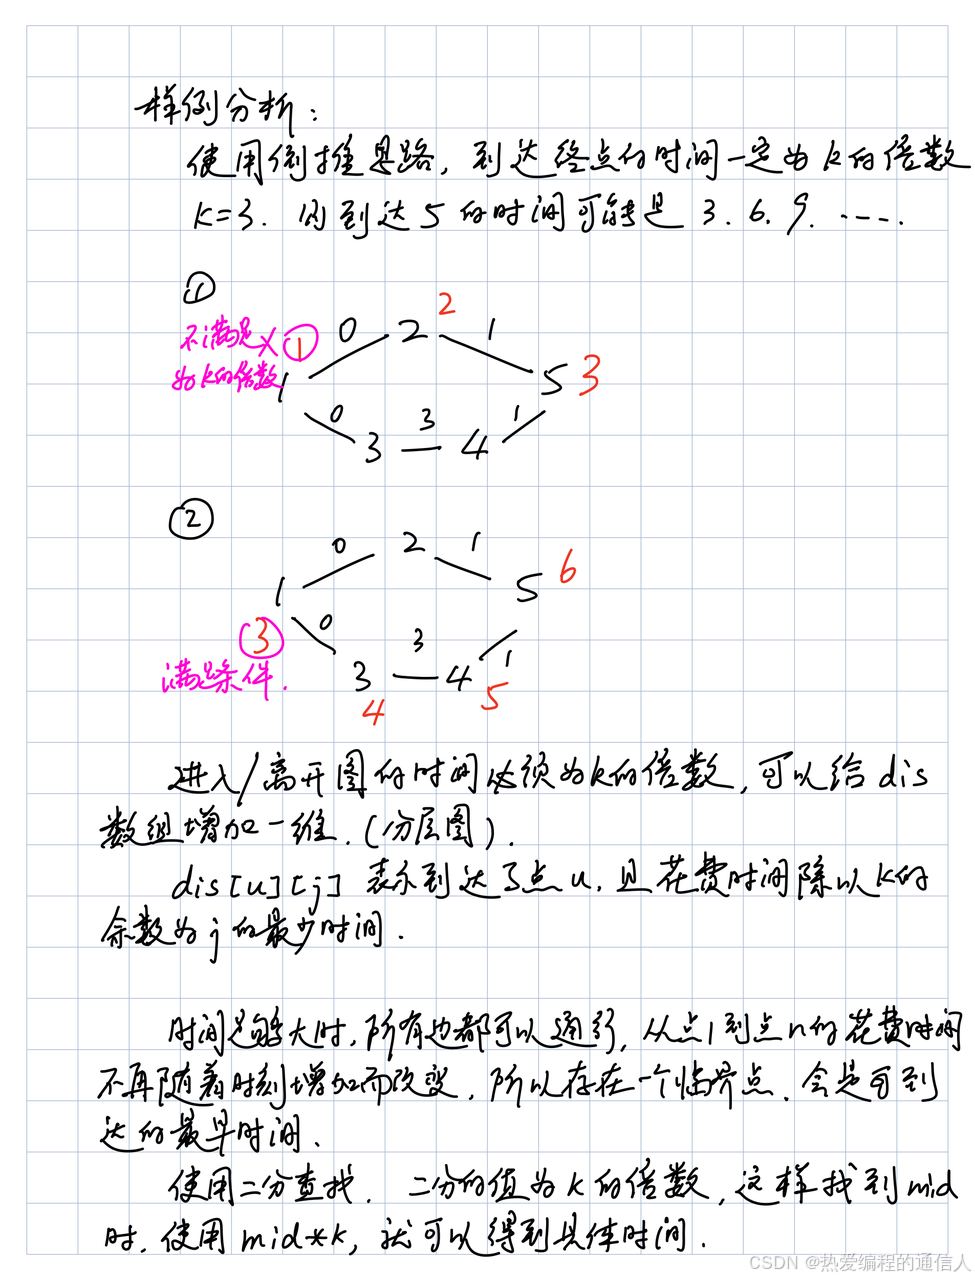 样例分析：
使用倒推思路，到达终点的时间一定为k的倍数
K=3. 例到达5的时间可能是 3. 6. 9. ......
①
2
不满足 × 1 0 2 1
为k的倍数 1 5 3
0 3 1
3 4
②
0 2 1
1 5 6
3 0 3
满足条件. 3 4 1
4 5
进入/离开图的时间必须为k的倍数，可以给dis
数组增加一维.(分层图).
dis[u][j] 表示到达了点u, 且花费时间除以K的
余数为j的最少时间.
时间足够大时，所有边都可以通行，从点1到点n的花费时间
不再随着时刻增加而改变，所以存在一个临界点，会是可到
达的最早时间.
使用二分查找. 二分的值为k的倍数，这样找到mid
时，使用mid*k，就可以得到具体时间.
CSDN @热爱编程的通信人